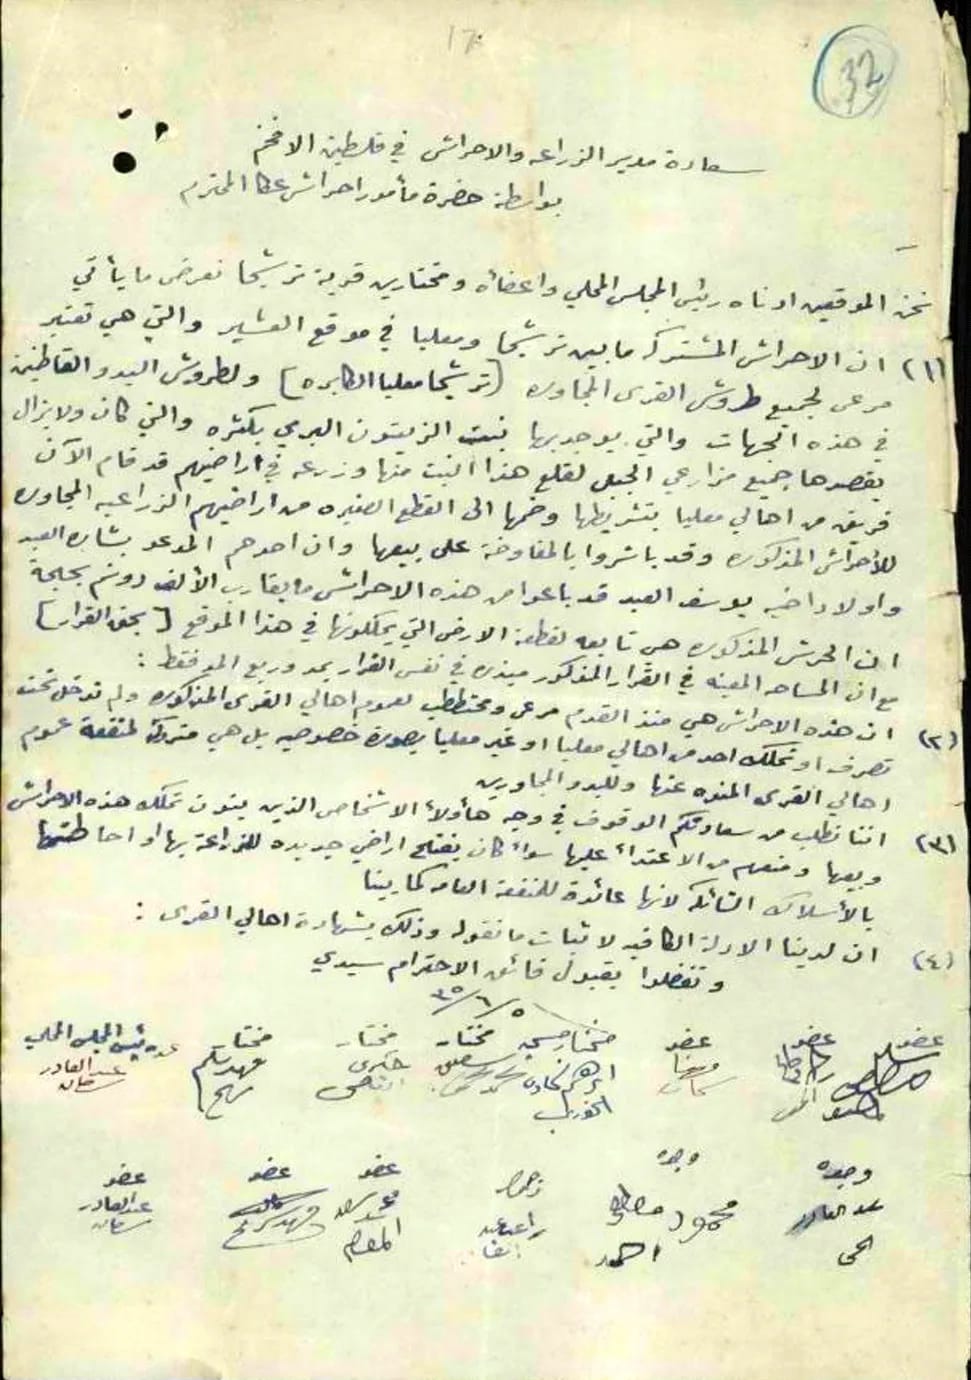 17
32
سعادة مدير الزراعه والاحراش في فلسطين الافخم
بواسطة حضرة مأمور احراش عكا المحترم
نحن الموقعين ادناه رئيس المجلس المحلي واعضائه ومختارين قرية ترشيحا نعرض ما يأتي
(١) ان الاحراش المشتركه ما بين ترشيحا ومعليا في موقع العشير والتي هي تعتبر
مرعى لجميع طروش القرى المجاوره (ترشيحا معليا الكابره) ولطروش البدو القاطنين
في هذه الجهات والتي يوجد بها نبت الزيتون البري بكثره والتي كان ولا يزال
يقصدها جميع مزارعي الجبل لقلع هذا النبت منها وزرعه في اراضيهم قد قام الآن
فريق من اهالي معليا بتشريطها وضمها الى القطع الصغيره من اراضيهم الزراعيه المجاوره
للأحراش المذكوره وقد باشروا بالمفاوضة على بيعها وان احدهم المدعو بشاره العبد
واولاد اخيه يوسف العبد قد باعوا من هذه الاحراش ما يقارب الألف دونم بحجة
ان الحرش المذكوره هي تابعه لقطعة الارض التي يملكونها في هذا الموقع (بحق القرار)
مع ان المساحه المعينه في القرار المذكور مبذره في نفس القرار بمد وربع المد فقط :
(٢) ان هذه الاحراش هي منذ القدم مرعى ومحتطب لعموم اهالي القرى المذكوره ولم تدخل تحت
تصرف او تملك احد من اهالي معليا او غير معليا بصورة خصوصيه بل هي متروكة لمنفعة عموم
اهالي القرى المنوه عنها وللبدو المجاورين
(٣) اننا نطلب من سعادتكم الوقوف في وجه هأولاء الاشخاص الذين ينون تملك هذه الاحراش
وبيعها ومنعهم من الاعتداء عليها سواء كان بفتح اراضي جديده للزراعة بها او احاطتها
بالأسلاك الشائكه لانها عائدة للمنفعة العامه كما بينا
(٤) ان لدينا الادلة الكافيه لاثبات ما نقوله وذلك بشهادة اهالي القرى :
وتفضلوا بقبول فائق الاحترام سيدي
٥/٦/٣٥
عضو عضو عضو مختار مسيحي مختار مختار مختار رئيس المجلس المحلي
ابراهيم الخوري
عبد القادر
وجوه وجوه عضو عضو عضو
عبد القادر محمود مصطفى محمد عبد القادر
احمد